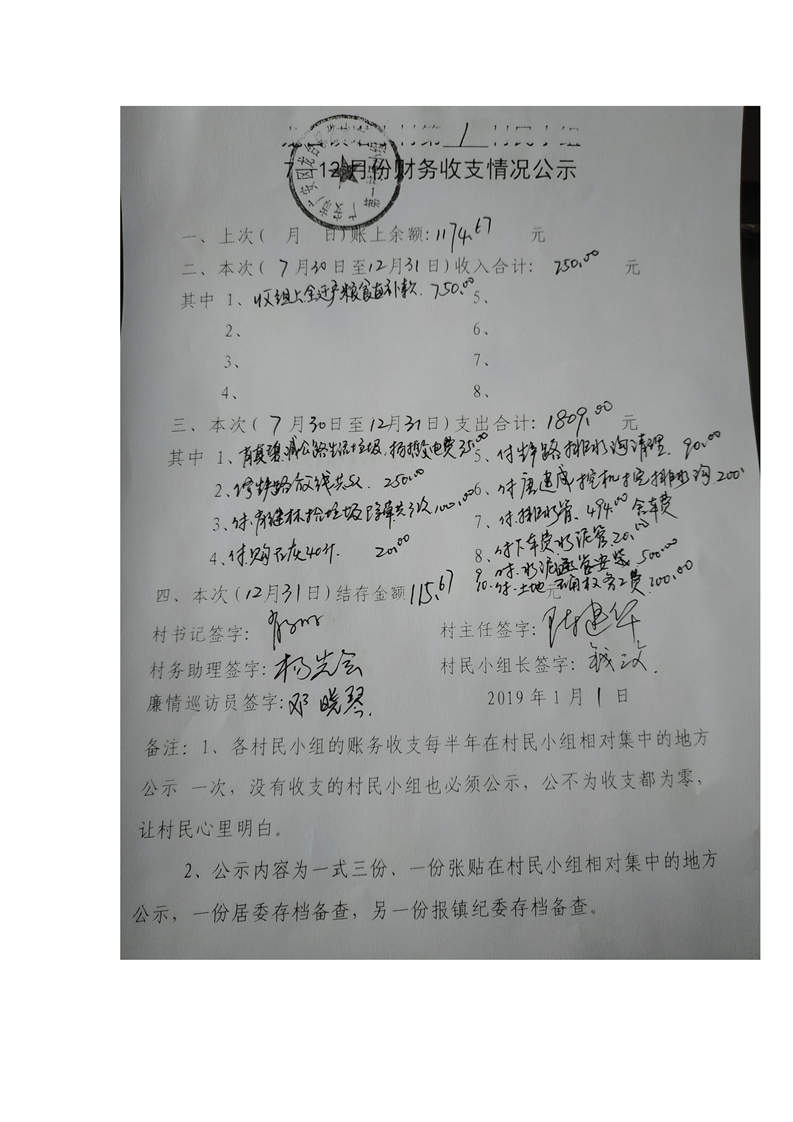 村第 1 村民小组
7-12月份财务收支情况公示
一、上次( 月 日)账上余额:1174.67 元
二、本次( 7月30日至12月31日)收入合计: 750.00 元
其中 1、收组上全迁户粮食直补款. 750.00 5、
2、 6、
3、 7、
4、 8、
三、本次( 7月30日至12月31日)支出合计: 1809.00 元
其中 1、公路 垃圾 电费 35.00 5、付 路排水沟清理. 90.00
2、 路放线共 250.00 6、付唐建成挖机挖排水沟 200.
3、付 建林拾垃圾 100.00 7、付.排水管. 494.00 含车费
4、付购石灰40斤. 20.00 8、付下车费水泥管. 20.00
9.付.水泥涵管安装. 500.00
四、本次(12月31日)结存金额115.67 元 10.付.土地确权务工费. 100.00
村书记签字: 村主任签字:陈建华
村务助理签字:杨先会 村民小组长签字:
廉情巡访员签字:邓晓琴. 2019年1月 1 日
备注: 1、各村民小组的账务收支每半年在村民小组相对集中的地方
公示 一次，没有收支的村民小组也必须公示，公不为收支都为零，
让村民心里明白。
2、公示内容为一式三份、一份张贴在村民小组相对集中的地方
公示，一份居委存档备查，另一份报镇纪委存档备查。